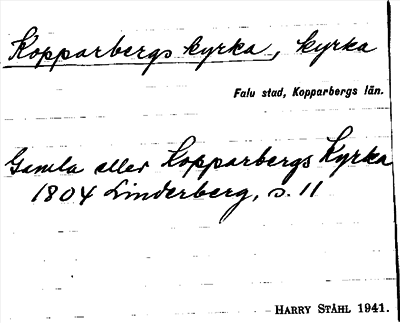 Kopparbergs kyrka, kyrka
Falu stad, Kopparbergs län.
Gamla eller Kopparbergs Kyrka
1804 Linderberg, s. 11
HARRY STÅHL 1941.